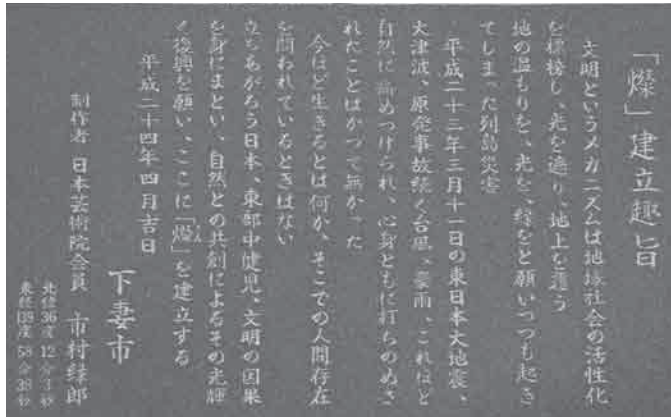 「燦」建立趣旨
文明というメガニズムは地域社会の活性化
を標榜し、光を遮り、地上を這う
地の温もりを、光を、緑をと願いつつも起き
てしまった列島災害
平成二十三年三月十一日の東日本大地震、
大津波、原発事故続く台風、豪雨、これほど
自然に痛めつけられ、心身ともに打ちのめさ
れたことはかつて無かった
今ほど生きるとは何か、そこでの人間存在
を問われているときはない
立ちあがろう日本、東部中健児、文明の因果
を身にまとい、自然との共創によるその光輝
く復興を願い、ここに「燦」を建立する
さん
平成二十四年四月吉日
下妻市
制作者 日本芸術院会員 市村緑郎
北緯36度12分3秒
東経139度58分38秒